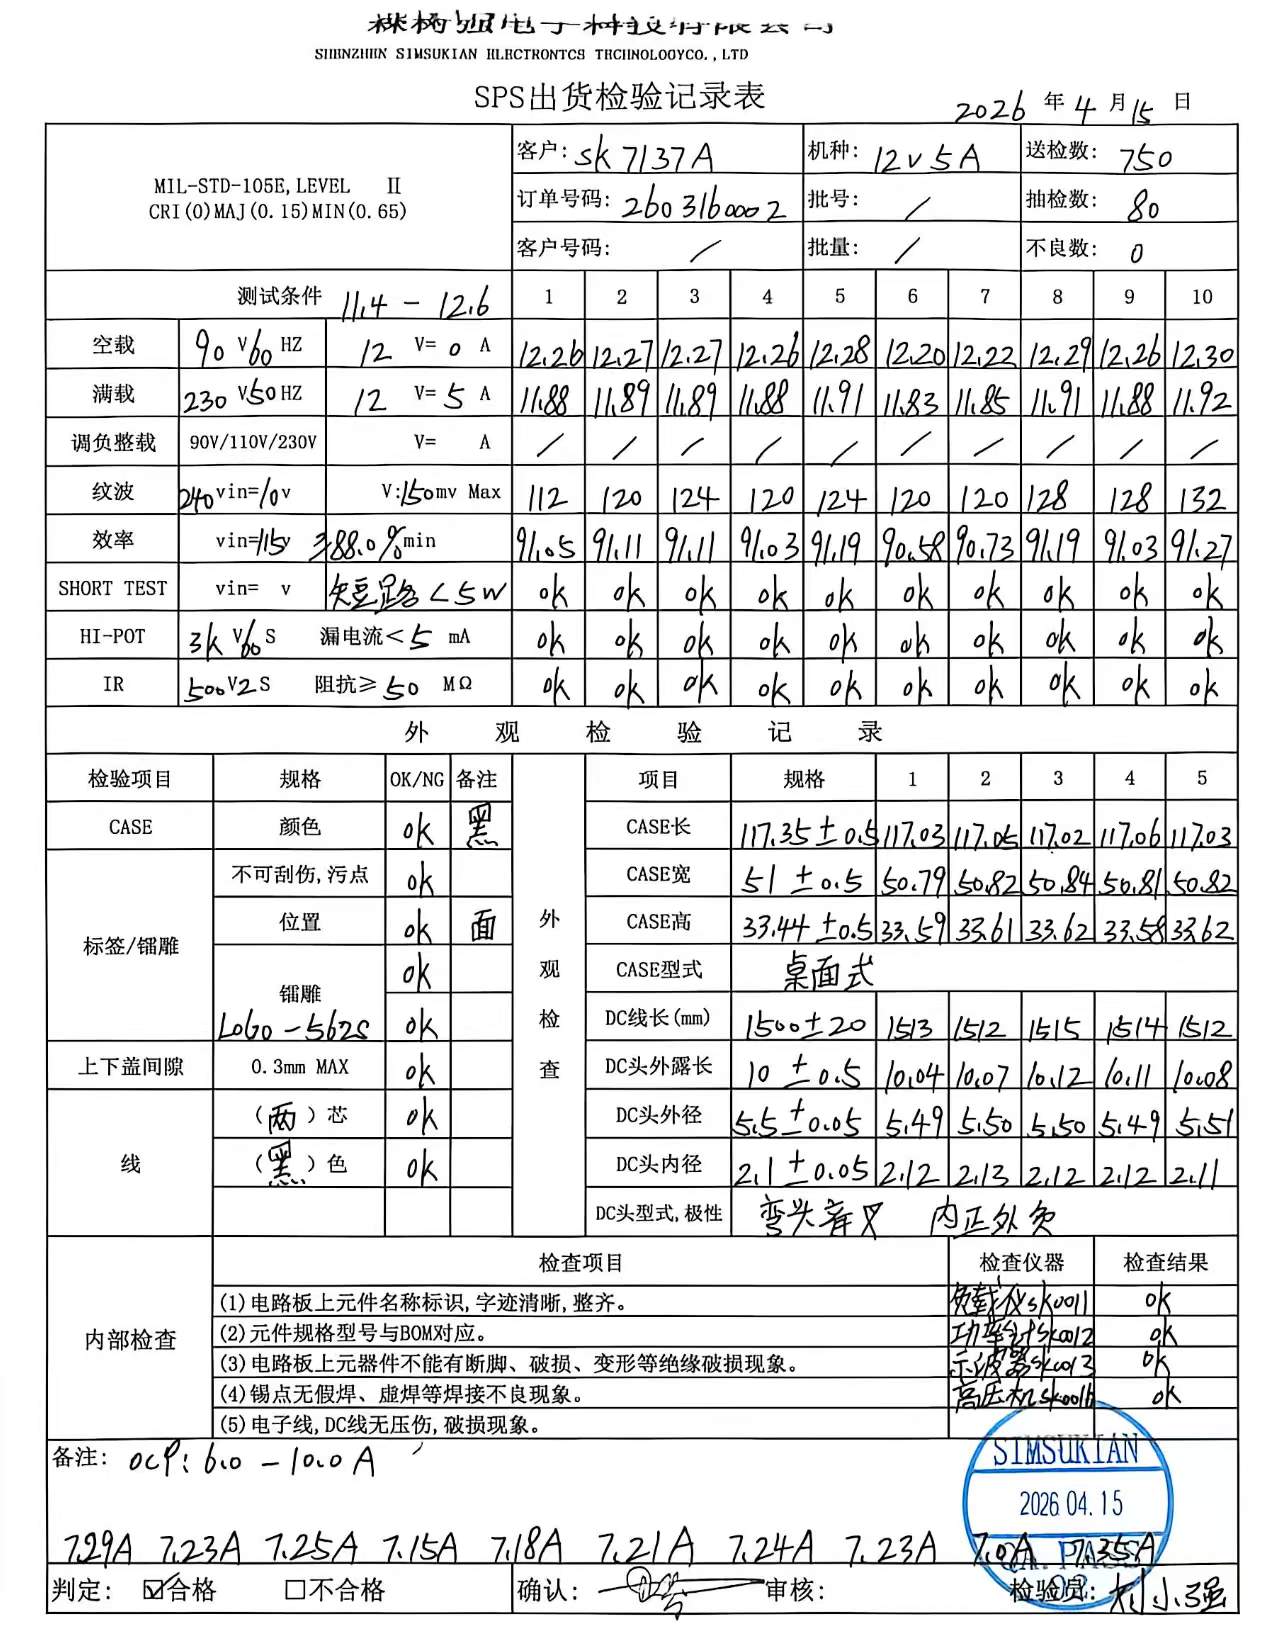 SHENZHEN SIMSUKIAN ELECTRONTCS TECHNOLOGYCO.,LTD
SPS出货检验记录表
2026 年 4 月 15 日
MIL-STD-105E,LEVEL Ⅱ
CRI(0)MAJ(0.15)MIN(0.65)
客户: SK7137A 机种: 12V5A 送检数: 750
订单号码: 2603160002 批号: / 抽检数: 80
客户号码: / 批量: / 不良数: 0
测试条件 11.4 - 12.6 1 2 3 4 5 6 7 8 9 10
空载 90 V60 HZ 12 V= 0 A 12.26 12.27 12.27 12.26 12.28 12.20 12.22 12.29 12.26 12.30
满载 230 V50 HZ 12 V= 5 A 11.88 11.89 11.89 11.88 11.91 11.83 11.85 11.91 11.88 11.92
调负整载 90V/110V/230V V= A / / / / / / / / / /
纹波 240vin=10v V:150mv Max 112 120 124 120 124 120 120 128 128 132
效率 vin=115v ≥88.0%min 91.05 91.11 91.11 91.03 91.19 90.58 90.73 91.19 91.03 91.27
SHORT TEST vin= v 短路<5W ok ok ok ok ok ok ok ok ok ok
HI-POT 3k V60 S 漏电流<5 mA ok ok ok ok ok ok ok ok ok ok
IR 500V2 S 阻抗≥50 MΩ ok ok ok ok ok ok ok ok ok ok
外观检验记录
检验项目 规格 OK/NG 备注 项目 规格 1 2 3 4 5
外观检查
CASE 颜色 ok 黑 CASE长 117.35±0.5 117.03 117.05 117.02 117.06 117.03
标签/镭雕 不可刮伤,污点 ok CASE宽 51±0.5 50.79 50.82 50.84 50.81 50.82
位置 ok 面 CASE高 33.44±0.5 33.59 33.61 33.62 33.58 33.62
镭雕 ok CASE型式 桌面式
LOGO-562S ok DC线长(mm) 1500±20 1513 1512 1515 1514 1512
上下盖间隙 0.3mm MAX ok DC头外露长 10±0.5 10.04 10.07 10.12 10.11 10.08
线 (两)芯 ok DC头外径 5.5±0.05 5.49 5.50 5.50 5.49 5.51
(黑)色 ok DC头内径 2.1±0.05 2.12 2.13 2.12 2.12 2.11
DC头型式,极性 弯头音叉 内正外负
内部检查 检查项目 检查仪器 检查结果
(1)电路板上元件名称标识,字迹清晰,整齐。 负载仪SK0011 ok
(2)元件规格型号与BOM对应。 功率计SK0012 ok
(3)电路板上元器件不能有断脚、破损、变形等绝缘破损现象。 示波器SK0013 ok
(4)锡点无假焊、虚焊等焊接不良现象。 高压机SK0016 ok
(5)电子线,DC线无压伤,破损现象。
备注: OCP: 6.0 - 10.0A
SIMSUKIAN
2026.04.15
QA. PASS
02
7.29A 7.23A 7.25A 7.15A 7.18A 7.21A 7.24A 7.23A 7.35A
判定: ☑合格 □不合格 确认: 审核: 检验员: 刘小强